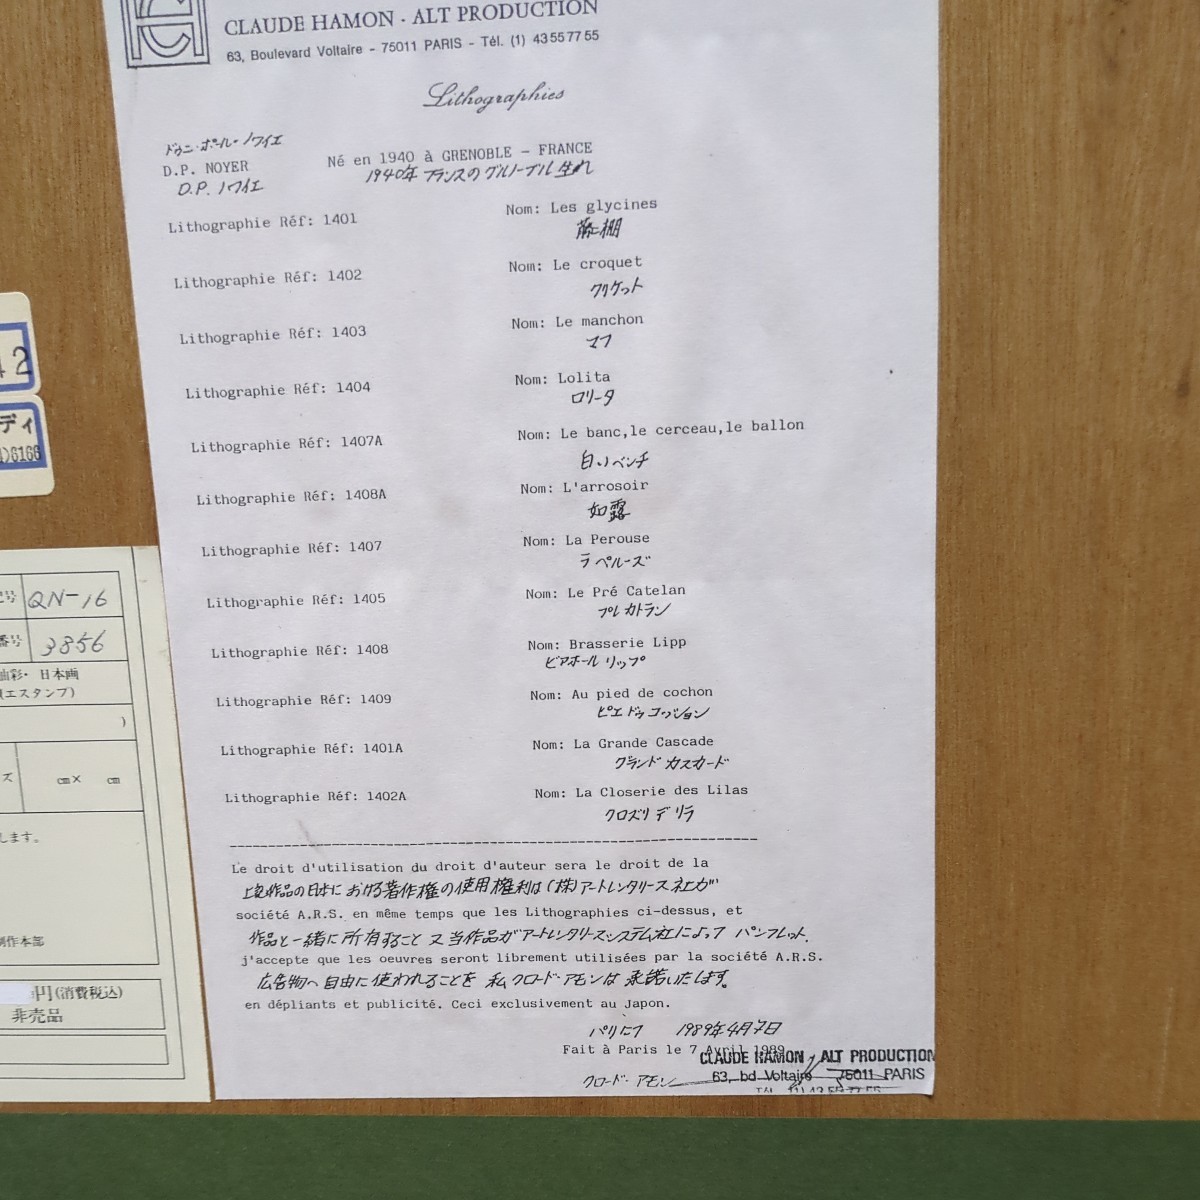 CLAUDE HAMON · ALT PRODUCTION
63, Boulevard Voltaire - 75011 PARIS - Tél. (1) 43 55 77 55
Lithographies
ドゥニ・ポール・ノワイエ
D.P. NOYER
D.P. ノワイエ
Né en 1940 à GRENOBLE - FRANCE
1940年 フランスの グルノーブル 生れ
Lithographie Réf: 1401
Nom: Les glycines
藤棚
Lithographie Réf: 1402
Nom: Le croquet
クリケット
Lithographie Réf: 1403
Nom: Le manchon
マフ
Lithographie Réf: 1404
Nom: Lolita
ロリータ
Lithographie Réf: 1407A
Nom: Le banc,le cerceau,le ballon
白いベンチ
Lithographie Réf: 1408A
Nom: L'arrosoir
如露
Lithographie Réf: 1407
Nom: La Perouse
ラ ペルーズ
Lithographie Réf: 1405
Nom: Le Pré Catelan
プレ カトラン
Lithographie Réf: 1408
Nom: Brasserie Lipp
ビアホール リップ
Lithographie Réf: 1409
Nom: Au pied de cochon
ピエ ドゥ コッション
Lithographie Réf: 1401A
Nom: La Grande Cascade
グランド カスカード
Lithographie Réf: 1402A
Nom: La Closerie des Lilas
クロズリ デ リラ
Le droit d'utilisation du droit d'auteur sera le droit de la
上記作品の日本に おける著作権の使用権利は(株)アートレンタリース社が
société A.R.S. en même temps que les Lithographies ci-dessus, et
作品と一緒に所有すること 又当作品がアートレンタリースシステム社によって パンフレット、
j'accepte que les oeuvres seront librement utilisées par la société A.R.S.
広告物へ自由に使われることを 私 クロード・アモンは 承諾いたします。
en dépliants et publicité. Ceci exclusivement au Japon.
パリにて 1989年4月7日
Fait à Paris le 7 Avril 1989
クロード・アモン
CLAUDE HAMON / ALT PRODUCTION
63, bd Voltaire 75011 PARIS
2
ディ
)6166
号 QN-16
番号 3856
油彩・日本画
(エスタンプ)
)
ズ cm× cm
します。
制作本部
円(消費税込)
非売品